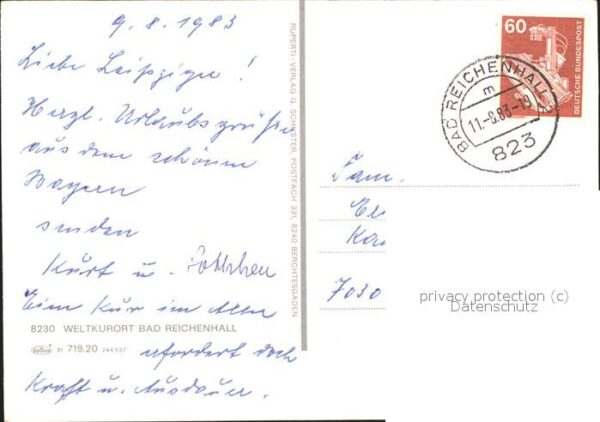 9.8.1983
Liebe Leipziger!
Herzl. Urlaubsgrüße
aus dem schönen
Bayern
senden
Kurt u.
Eine Kur im Alter
8230 WELTKURORT BAD REICHENHALL
31 719.20 244.537
erfordert doch
Kraft u. Ausdauer.
RUPERTI-VERLAG G. SCHUSTER, POSTFACH 331, 8240 BERCHTESGADEN
60
DEUTSCHE BUNDESPOST
BAD REICHENHALL
m
11.-8.83-19
823
Fam.
7030
privacy protection (c)
Datenschutz